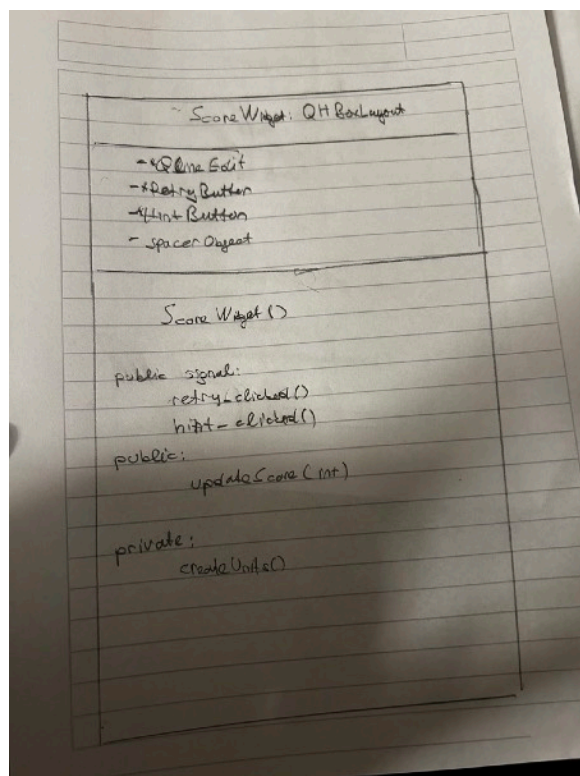 ScoreWidget: QHBoxLayout
- *QLineEdit
- *RetryButton
- *HintButton
- spacerObject
ScoreWidget()
public signal:
retry_clicked()
hint_clicked()
public:
updateScore(int)
private:
createUnits()